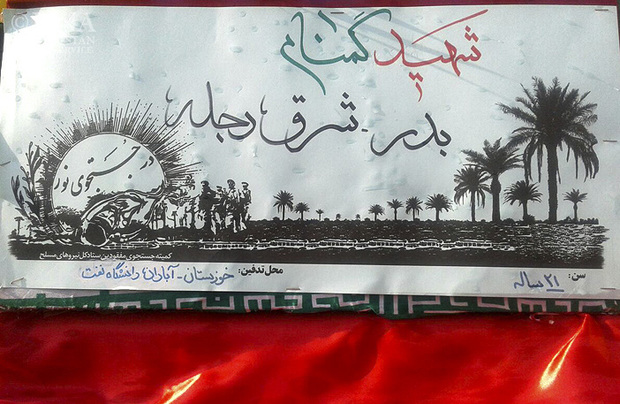 شهید گمنام
بدر - شرق دجله
در جستجوی نور
کمیته جستجوی مفقودین ستاد کل نیروهای مسلح
سن: ۲۱ ساله
محل تدفین: خوزستان - آبادان دانشگاه نفت